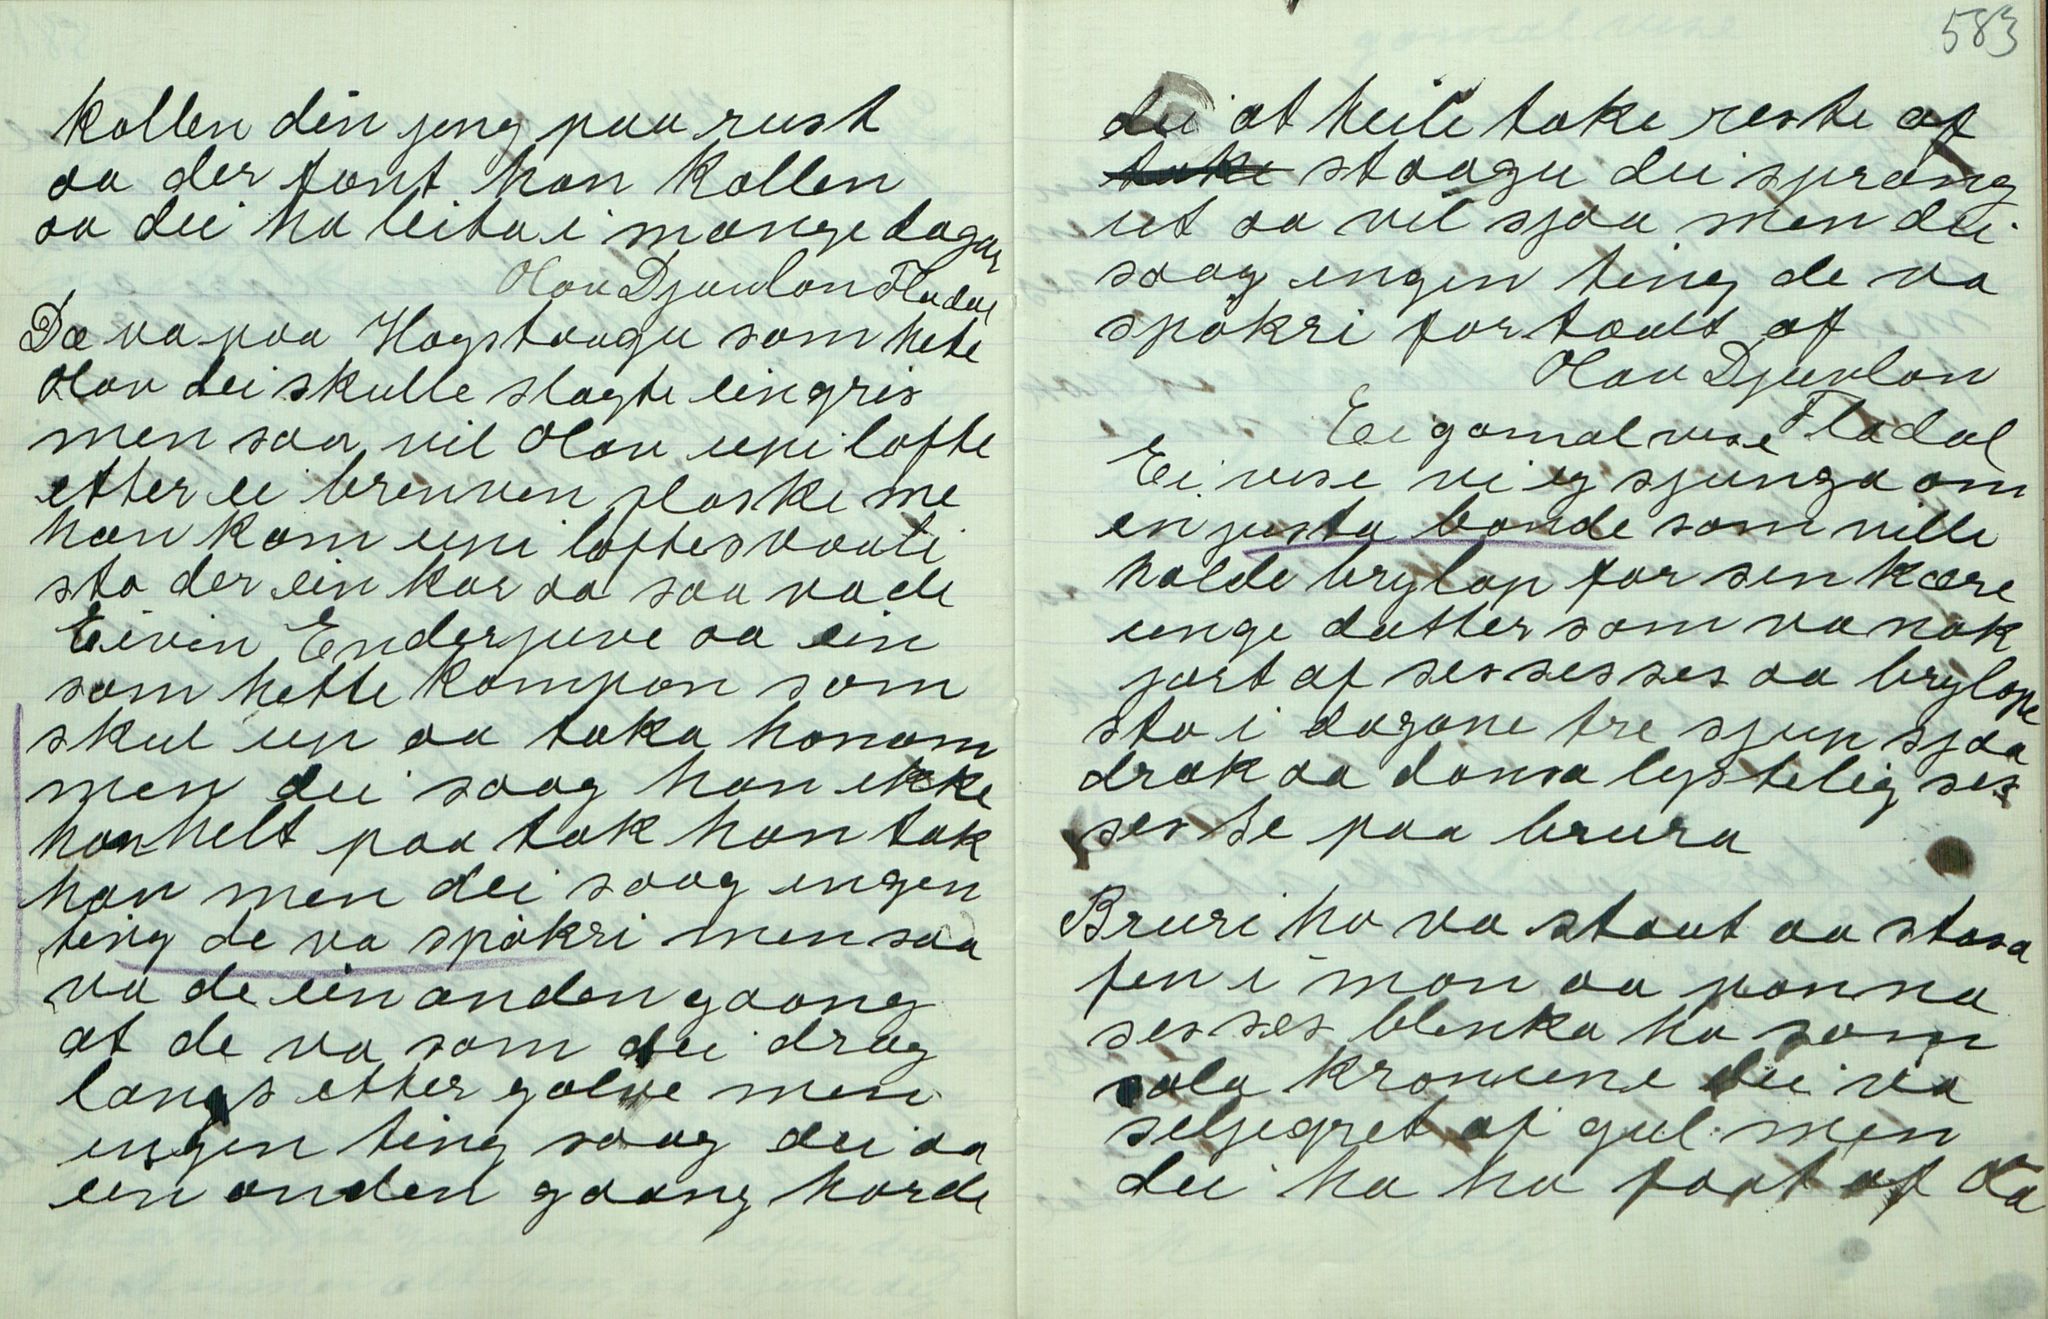 kollen din jeng paa rust
aa der fant han kollen
aa dei ha leita i mange dagar
Olav Djuvlon Fladal
Dæ va paa Hogstaagu som hete
Olav dei skulle slagte ein gris
men saa vil Olav upi lofte
etter ei brenven flaske me
han kom upi loftesvaali
sto der ein kar aa saa va de
Eivin Enderjuve aa ein
som hette Kompon som
skul up aa taka honom
men dei saag han ikke
han helt paa tok han tok
han men dei saag engen
ting de va spökri men saa
va de ein anden gaang
at de va som dei drog
langs etter golve men
engen ting saag dei aa
ein anden gaang horde
583
dei at heile take reste af
take staagu dei sprang
ut aa vil sjaa men dei
saag engen ting de va
spökri fortaalt af
Olav Djuvlon
Fladal
Ei gamal vise
Ei vise vi eg sjunga om
en justa bonde som ville
halde brylop for sen kære
unge datter som va nok
jort af ses ses ses aa brylope
sto i dagane tre sjup sjaa
drak aa dansa lystelig ses
ses se paa brura
Bruri ho va staut aa stasa
fen i mon aa panna
ses ses blenka ho som
sola kronune dei va
seljegret af gul men
dei ha ho faat af aa